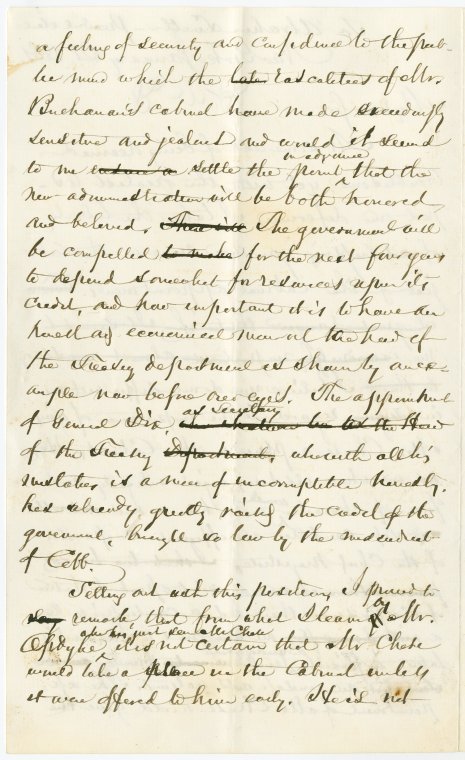 a feeling of security and confidence to the pub-
lic mind which the late rascalities of Mr.
Buchanan's cabinet have made exceedingly
sensitive and jealous and would it seem
to me settle the point in advance that the
new administration will be both honored
and beloved. There will The government will
be compelled to make for the next four years
to depend somewhat for resources upon its
credit, and how important it is to have an
honest and economical man at the head of
the Treasury department is shown by an ex-
ample now before our eyes. The appointment
of General Dix, as Secretary
of the Treasury Department, who with all his
mistakes is a man of incorruptible honesty,
has already, greatly raised the credit of the
government, brought so low by the misconduct
of Cobb.
Setting out with this position, I proceed to
say remark, that from what I learn of Mr.
Opdyke who has just seen Mr Chase it is not certain that Mr. Chase
would take a place in the Cabinet unless
it was offered to him early. He is not